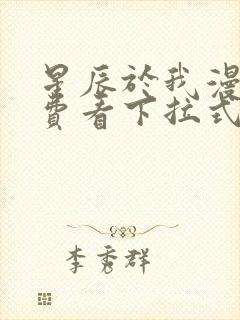 星辰於我漫
費看下拉式
李秀群